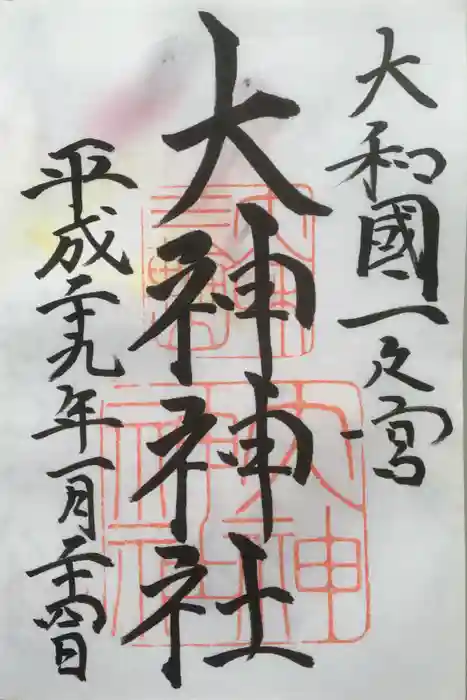 大和國一之宮
大神神社
平成二十九年一月二十四日